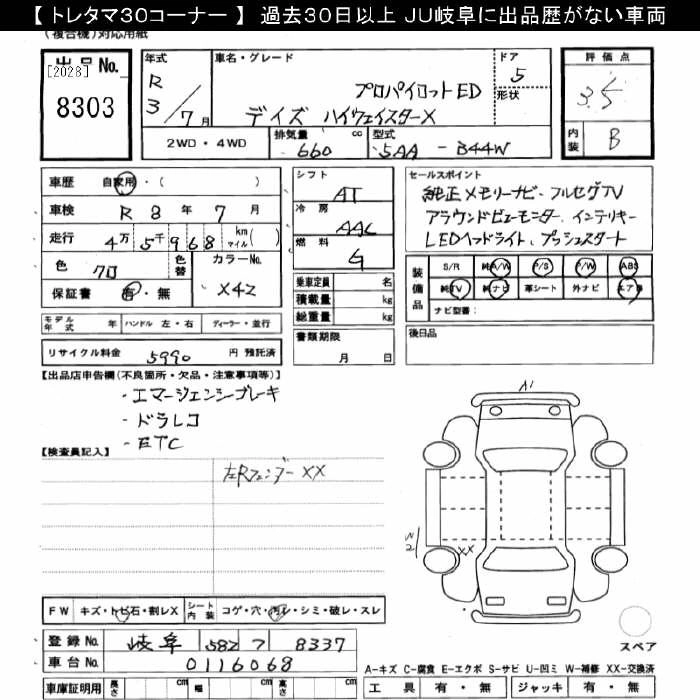 【 トレタマ30コーナー 】 過去30日以上 JU岐阜に出品歴がない車両
(複合機)対応用紙
出品No. [2028] 8303
年式 R 3/7月
車名・グレード プロパイロットED デイズ ハイウェイスターX
ドア 5 形状
評価点 3.5
内装 B
2WD・4WD 排気量 660 cc 型式 5AA - B44W
車歴 自家用・( )
車検 R 8 年 7 月
走行 4万 5千 9 6 8 km マイル( )
色 クロ 色替 カラーNo. X42
保証書 有・無
シフト AT
冷房 AAC
燃料 G
乗車定員 名
積載量 kg
総重量 kg
書類期限 月 日
セールスポイント
純正メモリーナビ・フルセグTV
アラウンドビューモニター、インテリキー
LEDヘッドライト、プッシュスタート
装備品 S/R 純A/W P/S P/W ABS
純TV 純ナビ 革シート 外ナビ エアB
ナビ型番:
後日品
モデル年式 年 ハンドル 左・右 ディーラー・並行
リサイクル料金 5990 円 預託済
【出品店申告欄(不良箇所・欠品・注意事項等)】
・エマージェンシーブレーキ
・ドラレコ
・ETC
【検査員記入】
左Rフェンダー XX
A1
W2
XX
FW キズ・トビ石・割レX シート内装 コゲ・穴・汚レ・シミ・破レ・スレ
スペア
登録No. 岐阜 582 フ 8337
車台No. 0116068
A-キズ C-腐食 E-エクボ S-サビ U-凹ミ W-補修 XX-交換済
車庫証明用 長さ cm 幅 cm 高さ cm
工具 有・無 ジャッキ 有・無